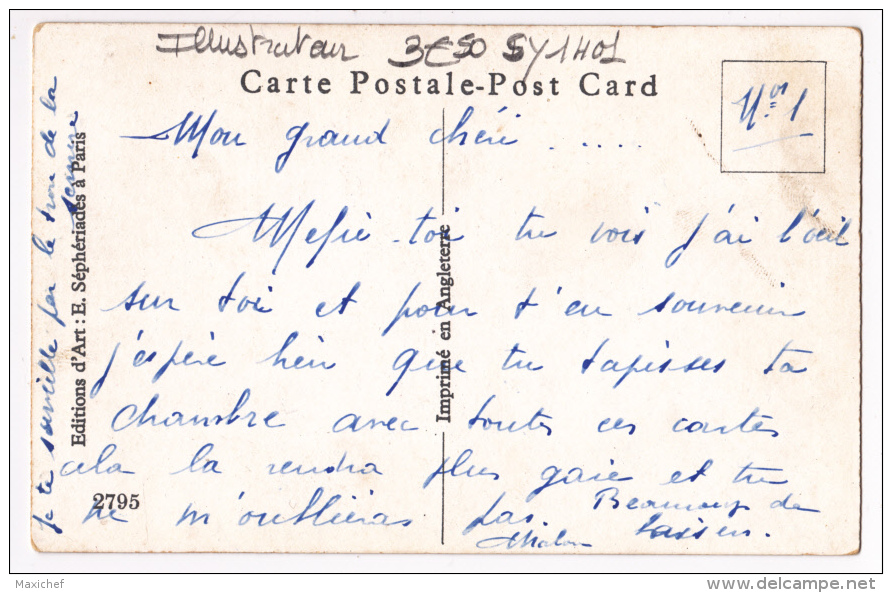 Illustrateur 3€50 SY1401
Carte Postale-Post Card
Nos 1
Mon grand chéri .....
Mefie-toi tu vois j'ai l'oeil
sur toi et pour t'en souvenir
j'espère hein que tu tapisses ta
chambre avec toutes ces cartes
cela la rendra plus gaie et tu
ne m'oublieras pas. Beaucoup de
baisers.
je te surveille par le trou de la
serrure
Editions d'Art : E. Séphériadès à Paris
Imprimé en Angleterre
2795
Maxichef
www.delcampe.net